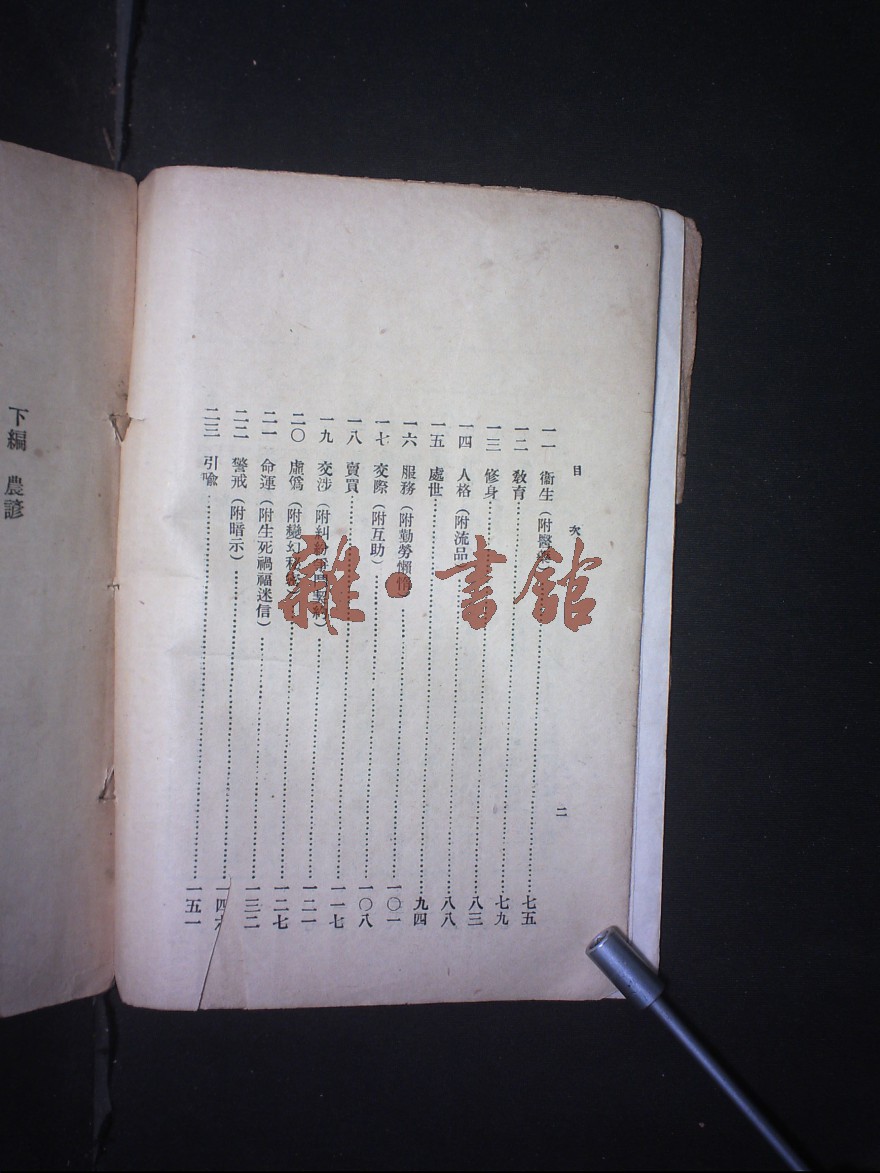 目次
二
一一 衞生(附醫藥)……七五
一二 敎育……七九
一三 修身……八三
一四 人格(附流品)……八八
一五 處世……九四
一六 服務(附勤勞懶惰)……一〇一
一七 交際(附互助)……一〇八
一八 賣買……一一七
一九 交涉(附糾紛爭鬥契約)……一二一
二〇 虛僞(附變幻)……一二七
二一 命運(附生死禍福迷信)……一三二
二二 警戒(附暗示)……一四六
二三 引喩……一五一
下編 農諺
雜·書館